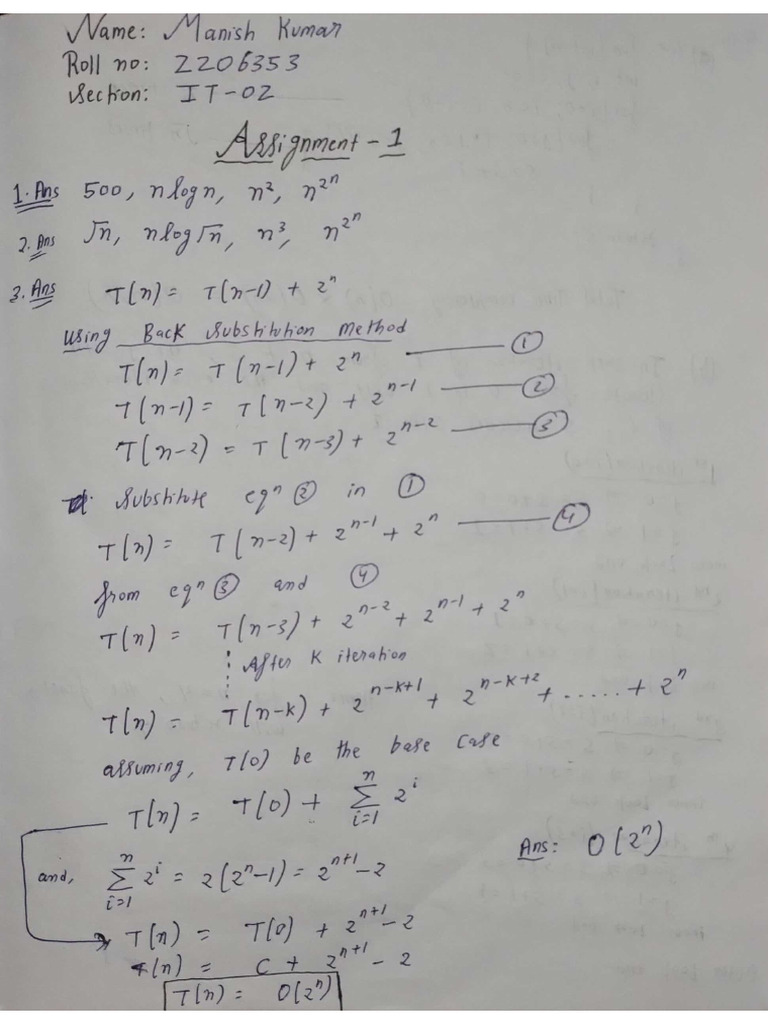 Name: Manish Kumar
Roll no: 2206353
Section: IT-02
Assignment - 1
1. Ans 500, n log n, n², n^2^n
2. Ans √n, n log √n, n³, n^2^n
3. Ans T(n) = T(n-1) + 2^n
Using Back Substitution Method
T(n) = T(n-1) + 2^n ——— ①
T(n-1) = T(n-2) + 2^(n-1) ——— ②
T(n-2) = T(n-3) + 2^(n-2) ——— ③
Substitute eqn ② in ①
T(n) = T(n-2) + 2^(n-1) + 2^n ——— ④
from eqn ③ and ④
T(n) = T(n-3) + 2^(n-2) + 2^(n-1) + 2^n
⋮ After K iteration
T(n) = T(n-k) + 2^(n-k+1) + 2^(n-k+2) + ..... + 2^n
assuming, T(0) be the base case
T(n) = T(0) + ∑_{i=1}^{n} 2^i
Ans: O(2^n)
and, ∑_{i=1}^{n} 2^i = 2(2^n-1) = 2^(n+1) - 2
T(n) = T(0) + 2^(n+1) - 2
T(n) = C + 2^(n+1) - 2
T(n) = O(2^n)